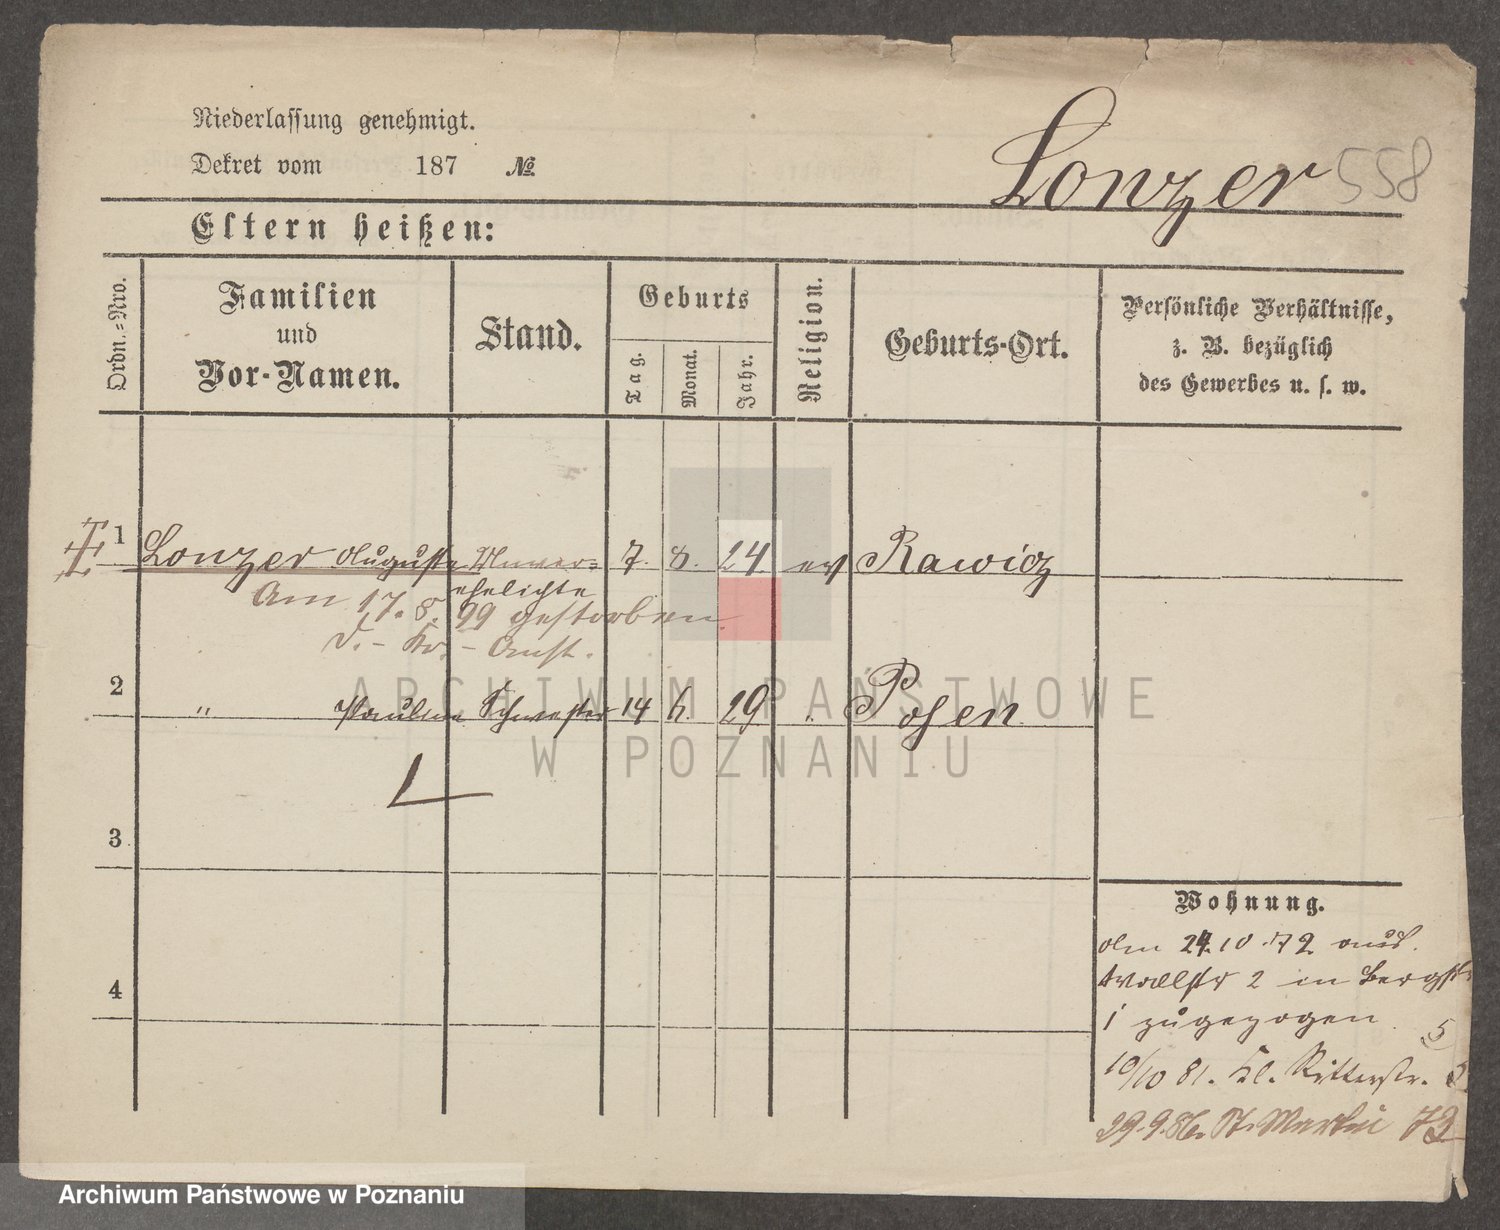 Niederlassung genehmigt.
Dekret vom 187 №
Lonzer 558
Eltern heißen:
Ordn.=Nro.
Familien
und
Vor-Namen.
Stand.
Geburts
Tag.
Monat.
Jahr.
Religion.
Geburts-Ort.
Persönliche Verhältnisse,
z. B. bezüglich
des Gewerbes u. s. w.
1 Lonzer Auguste Unver= 7. 8. 24. ev Rawicz
ehelichte
Am 17. 8. 99 gestorben.
d. - Kr. - Anst.
2 " Pauline Schwester 14 6. 29. " Posen
3
4
Wohnung.
Am 24.10.72 aus
Wallstr 2 in Bergstr
1 zugezogen
10/10 81. Kl. Ritterstr.
29.9.86. St. Martin 73
ARCHIWUM PAŃSTWOWE
W POZNANIU
Archiwum Państwowe w Poznaniu